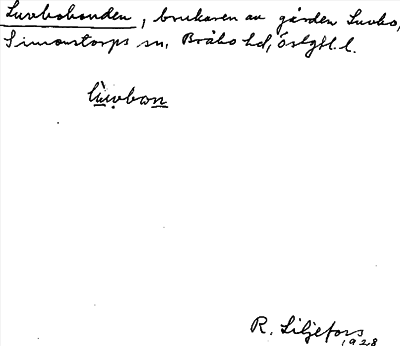 Luvbobonden, brukaren av gården Luvbo,
Simonstorps sn, Bråbo hd, Östgtl. l.
R. Liljefors
1928